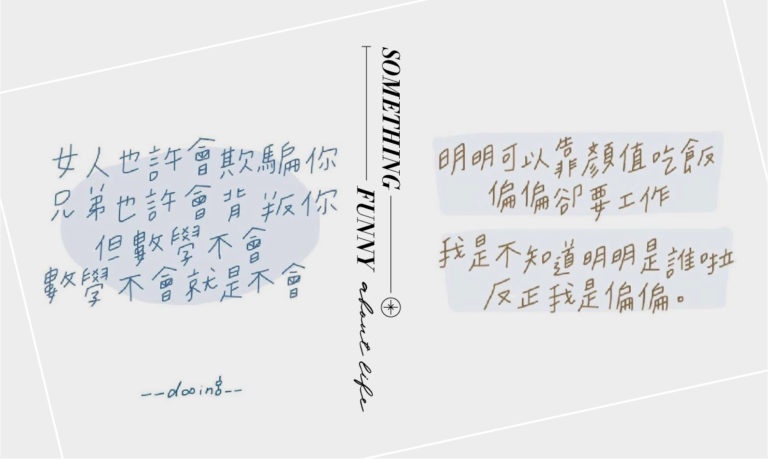 女人也許會欺騙你
兄弟也許會背叛你
但數學不會
數學不會就是不會
--dooing--
SOMETHING
FUNNY
about life
明明可以靠顏值吃飯
偏偏卻要工作
我是不知道明明是誰啦
反正我是偏偏。